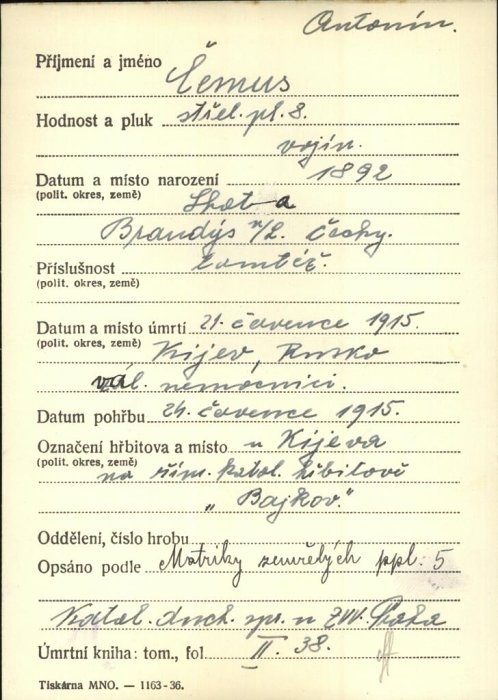 Antonín.
Příjmení a jméno Čemus
Hodnost a pluk střel. pl. 8.
vojín.
Datum a místo narození 1892
(polit. okres, země) Lhota
Brandýs n/L. Čechy.
Příslušnost tamtéž.
(polit. okres, země)
Datum a místo úmrtí 21. července 1915.
(polit. okres, země) Kijev, Rusko
vál. nemocnici.
Datum pohřbu 24. července 1915.
Označení hřbitova a místo u Kijeva
(polit. okres, země) na řím. katol. hřbitově
„Bajkov."
Oddělení, číslo hrobu
Opsáno podle Matriky zemřelých ppl. 5
Katol. duch. spr. u ZVV. Praha
Úmrtní kniha: tom., fol. II. 38.
Tiskárna MNO. — 1163-36.